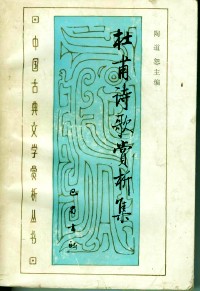 杜甫诗歌赏析集
陶道恕主编
中国古典文学赏析丛书
巴蜀书社